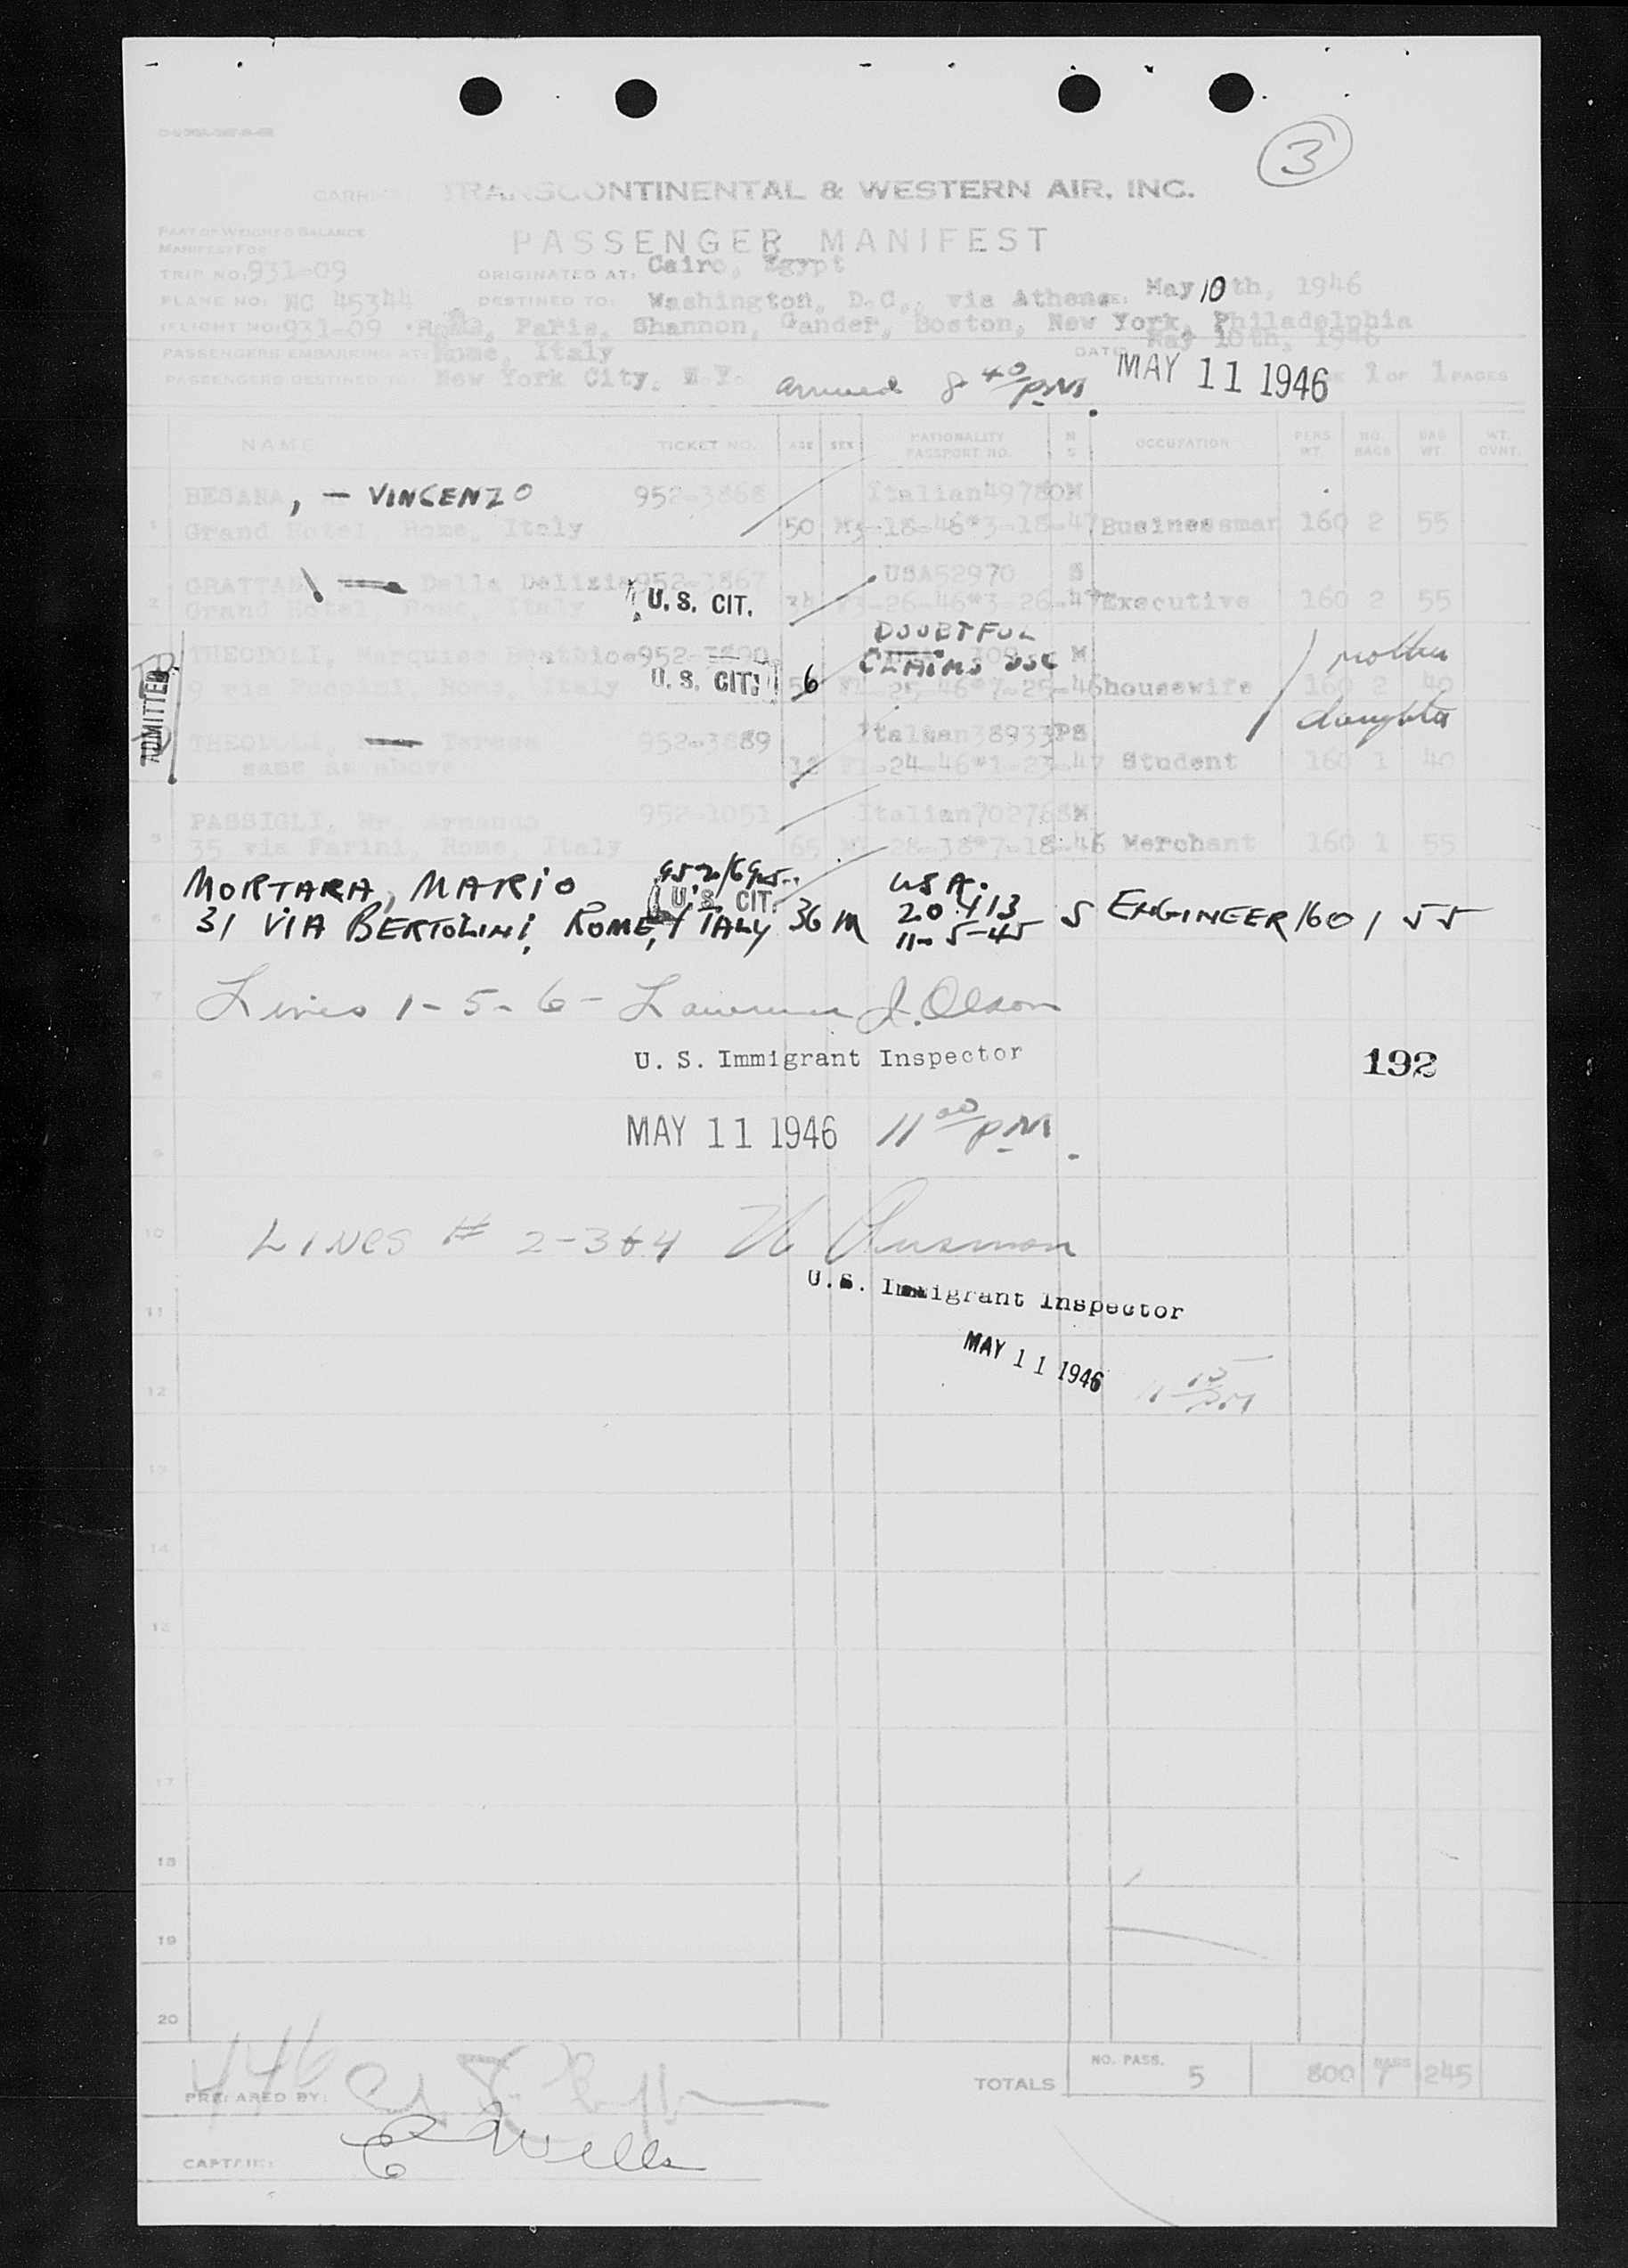 3
CARRIER: TRANSCONTINENTAL & WESTERN AIR, INC.
PART OF WEIGHT & BALANCE
MANIFEST FOR
PASSENGER MANIFEST
TRIP NO: 931-09 ORIGINATED AT: Cairo, Egypt
PLANE NO: NC 45344 DESTINED TO: Washington, D.C., via Athens May 10th, 1946
FLIGHT NO: 931-09 Rome, Paris, Shannon, Gander, Boston, New York, Philadelphia
PASSENGERS EMBARKING AT: Rome, Italy DATE May 10th, 1946
PASSENGERS DESTINED TO: New York City, N.Y. arrived 8 40 PM. MAY 11 1946 1 OF 1 PAGES
NAME TICKET NO. AGE SEX NATIONALITY PASSPORT NO. M S OCCUPATION PERS WT. NO. BAGS BAG WT. WT. OVNT.
BESANA, - VINCENZO 952-3868 Italian 49780 M
1 Grand Hotel, Rome, Italy 50 M 3-18-46*3-18-47 Businessman 160 2 55
Della Delizia 952-3867 USA 52970 S
2 Grand Hotel, Rome, Italy U. S. CIT. 34 F 3-26-46*3-26-47 Executive 160 2 55
DOUBTFUL
THEODOLI, Marquise 952-3890 CLAIMS USC M mother
9 via Puccini, Rome, Italy U. S. CIT. 6 -25-46*7-25-46 housewife 160 2 40
ADMITTED
THEODOLI, Teresa 952-3889 Italian 38933P S daughter
same as above 18 F 1-24-46*1-23-47 Student 160 1 40
PASSIGLI, Mr. Armando 952-1051 Italian 702768 M
5 35 via Farini, Rome, Italy 65 M -28-38*7-18-46 Merchant 160 1 55
MORTARA, MARIO U. S. CIT. USA.
6 31 VIA BERTOLINI, ROME, ITALY 36 M 20413 S ENGINEER 160 1 55
11-5-45
7 Lines 1-5-6- Lawrence J. Olson
U. S. Immigrant Inspector 192
8
MAY 11 1946 11 00 PM.
9
10 LINES # 2-3&4
U.S. Immigrant Inspector
11
MAY 11 1946 11 15 PM
12
13
14
15
17
18
19
20
446
TOTALS NO. PASS. 5 800 BAGS 7 245
PREPARED BY:
CAPTAIN: E Wells